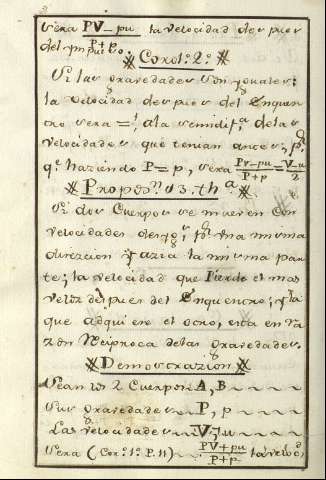 sera PV-pu la velocidad despues
P+p
del impulso.
Corol.º 2.º
Si las gravedades son yguales:
la velocidad despues del Enquen
tro sera = a la semidif.ª de las
velocidades que tenian antes; p.q
q.e haziendo P=p, sera Pv-pu/P+p = V-u/2
Propos.n 13. th.ª
Si dos Cuerpos se mueven con
velocidades desyg.s, p.r la misma
direzcion y azia la misma par
te; la velocidad que Pierde el mas
veloz despues del Enquentro; y la
que adquiere el otro, esta en ra
zon Reziproca de las gravedades.
Demostrazion
Sean los 2 Cuerpos A, B
Sus gravedades P, p
Las velocidades V, u
Sera (Cor. 1.º P. 11) PV+pu/P+p la veloc.d